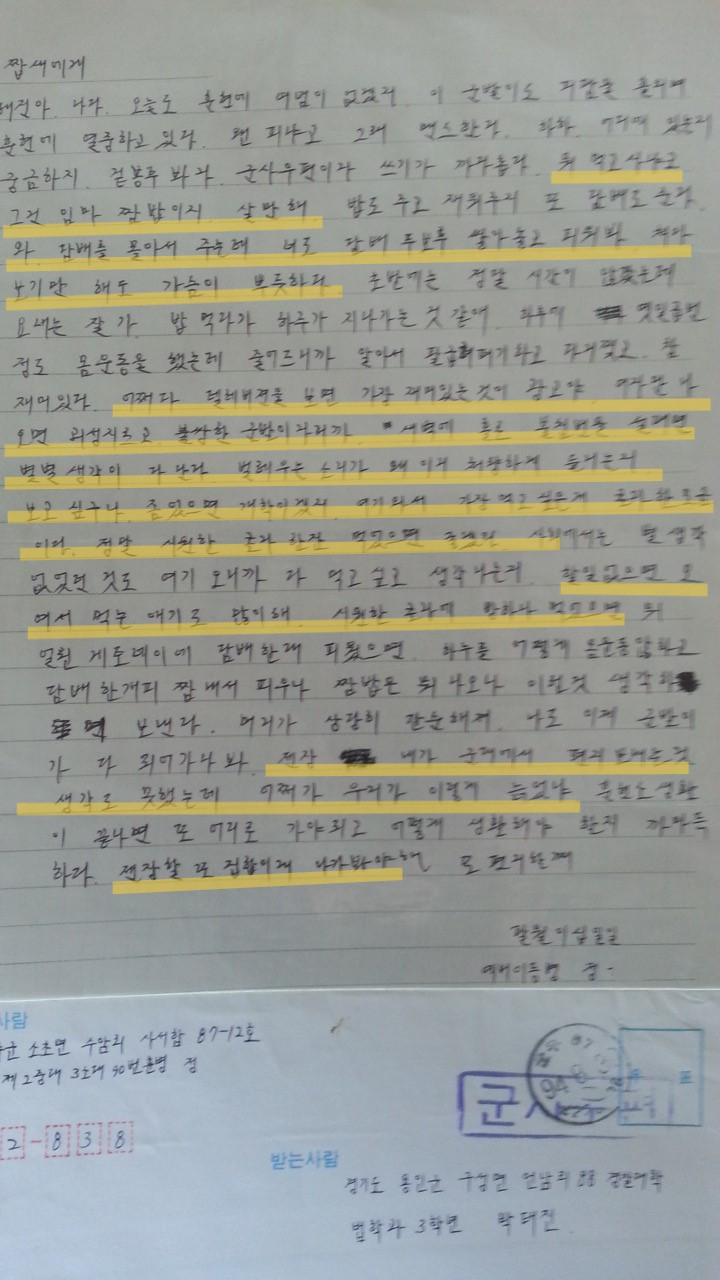 짭새에게
태진아. 나다. 오늘도 훈련에 여념이 없겠지. 이 군발이도 피땀을 흘리며
훈련에 열중하고 있다. 웬 피냐고 그래 땀으로 한다. 하하. 어디에 있는지
궁금하지. 겉봉투 봐라. 군사우편이라 쓰기가 까다롭다. 뭐 먹고 사냐고
그건 임마 짬밥이지. 살만해. 밥도 주고 재워주지 또 담배도 준다.
와. 담배를 몰아서 주는데 너도 담배 두보루 쌓아놓고 피워봐. 쳐다
보기만 해도 가슴이 뿌듯하다. 초반에는 정말 시간이 안갔는데
요새는 잘 가. 밥 먹다가 하루가 지나가는 것 같애. 하루에 몇일곱번
정도 몸운동을 했는데 줄어드니까 알아서 하고 다 참
재미있다. 어쩌다 텔레비젼을 보면 가장 재미있는것이 광고야. 여자만 나
오면 괴성지르고 불쌍한 군발이라니까. 새벽에 홀로 불침번을 설려면
별별생각이 다 난다. 벌레우는 소리가 왜 이리 처량하게 들리는지
보고 싶구나. 좀있으면 개학이겠지. 여기와서 가장 먹고 싶은게 콜라 한모금
이다. 정말 시원한 콜라 한잔 먹었으면 좋겠다. 사회에서는 별 생각
없었던 것도 여기 오니까 다 먹고 싶고 생각나는지. 할일없으면 모
여서 먹는 얘기로 많이해. 시원한 콜라에 빵하나 먹었으면 뭐
얼린 게토레이에 담배한대 피웠으면. 하루를 어떻게 몸운동않하고
담배 한개피 짬내서 피우나 짬밥은 뭐 나오나 이런것 생각하
며 보낸다. 머리가 상당히 단순해져. 나도 이제 군발이
가 다 되어가나봐. 젠장 내가 군대에서 편지 보내는것
생각도 못했는데 어쩌다 우리가 이렇게 늙었냐 훈련소생활
이 끝나면 또 어디로 가야되고 어떻게 생활해야 할지 까마득
하다. 젠장할 또 집합이래 나가봐야해 또 편지할께
팔월 이십일일
예비이등병 정 -
사람
군 소초면 수암리 사서함 87-12호
제2중대 3소대 90번훈병 정
2-838
군사
94
우 표
받는사람
경기도 용인군 구성면 언남리 88 경찰대학
법학과 3학년 박태진